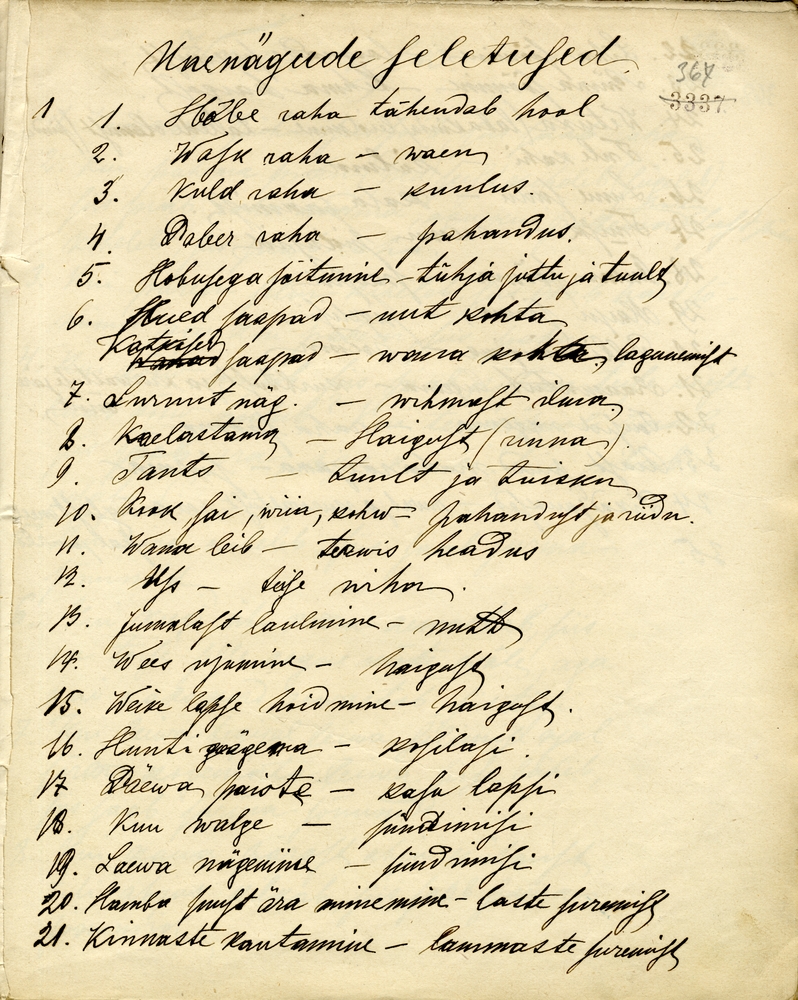 Unenägude seletused.
364
3337
1 1. Hõbe raha tähendab hool
2. Wask raha – waen
3. Kuld raha – kuulus.
4. Paber raha – pahandus.
5. Hobusega sõitmine – tühja juttu ja tuult
6. Uued saapad – uut kohta
Katkised saapad – wana kohta, lagunemist
7. Surnut näg. – wihmast ilma.
8. Kaelastama – Haigust (rinna).
9. Tants – tuult ja tuisku
10. Kook sai, wiin, kohw – pahandust ja riidu.
11. Wana leib – terwis headus
12. Uss – teise wiha.
13. Jumalast laulmine – nutt
14. Wees ujumine – haigust
15. Weike lapse hoidmine – haigust.
16. Hunti nägema – kosilasi.
17 Päewa paiste – kasu lapsi
18. Kuu walge – sündimisi
19. Laewa nägemine – sündimisi
20. Hamba suust ära minemine – laste suremist
21. Kinnaste kautamine – lammaste suremist